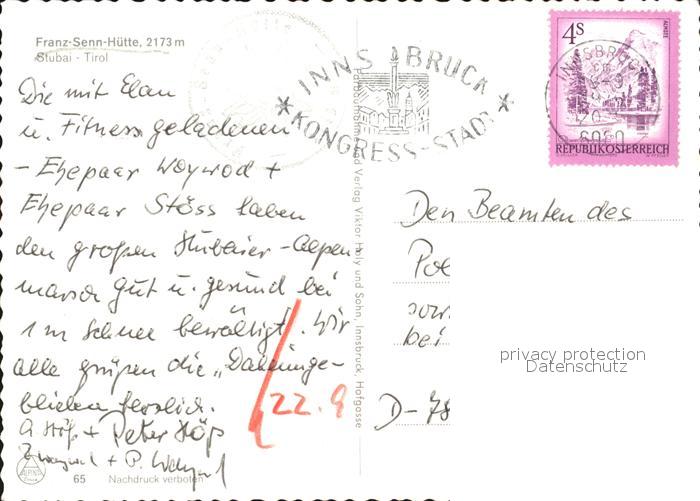 Franz-Senn-Hütte, 2173 m
Stubai - Tirol
Die mit Elan
u. Fitness geladenen
- Ehepaar Woywod +
Ehepaar Stöss haben
den großen Stubaier-Alpen-
marsch gut u. gesund bei
1 m Schnee bewältigt. Wir
alle grüßen die „Daheimge-
bliebenen herzlich.
+ Peter Stöß
+ P. 
65 Nachdruck verboten
22. 9
Farbaufnahme und Verlag Viktor Holy und Sohn, Innsbruck, Hofgasse
INNSBRUCK
KONGRESS-STADT
4S
ALMSEE
REPUBLIK ÖSTERREICH
INNSBRUCK
6020
Den Beamten des
Pol
sow.
bei
D-78
privacy protection
Datenschutz